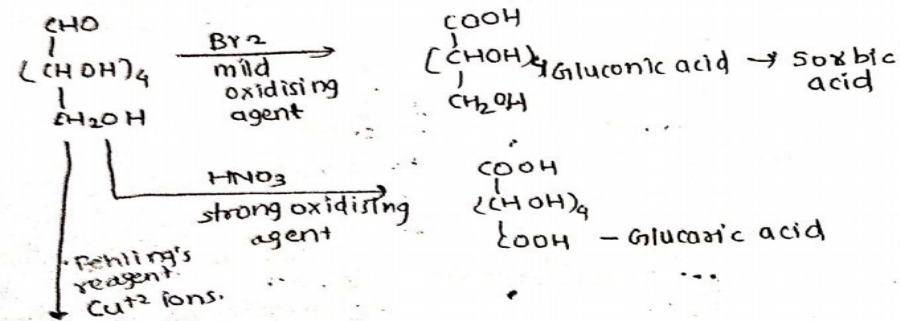 CHO
(CHOH)4
CH2OH
Br2
mild
oxidising
agent
COOH
(CHOH)4
CH2OH
Gluconic acid → Sorbic
acid
HNO3
strong oxidising
agent
COOH
(CHOH)4
COOH – Glucaric acid
Fehling's
reagent.
Cu+2 ions.